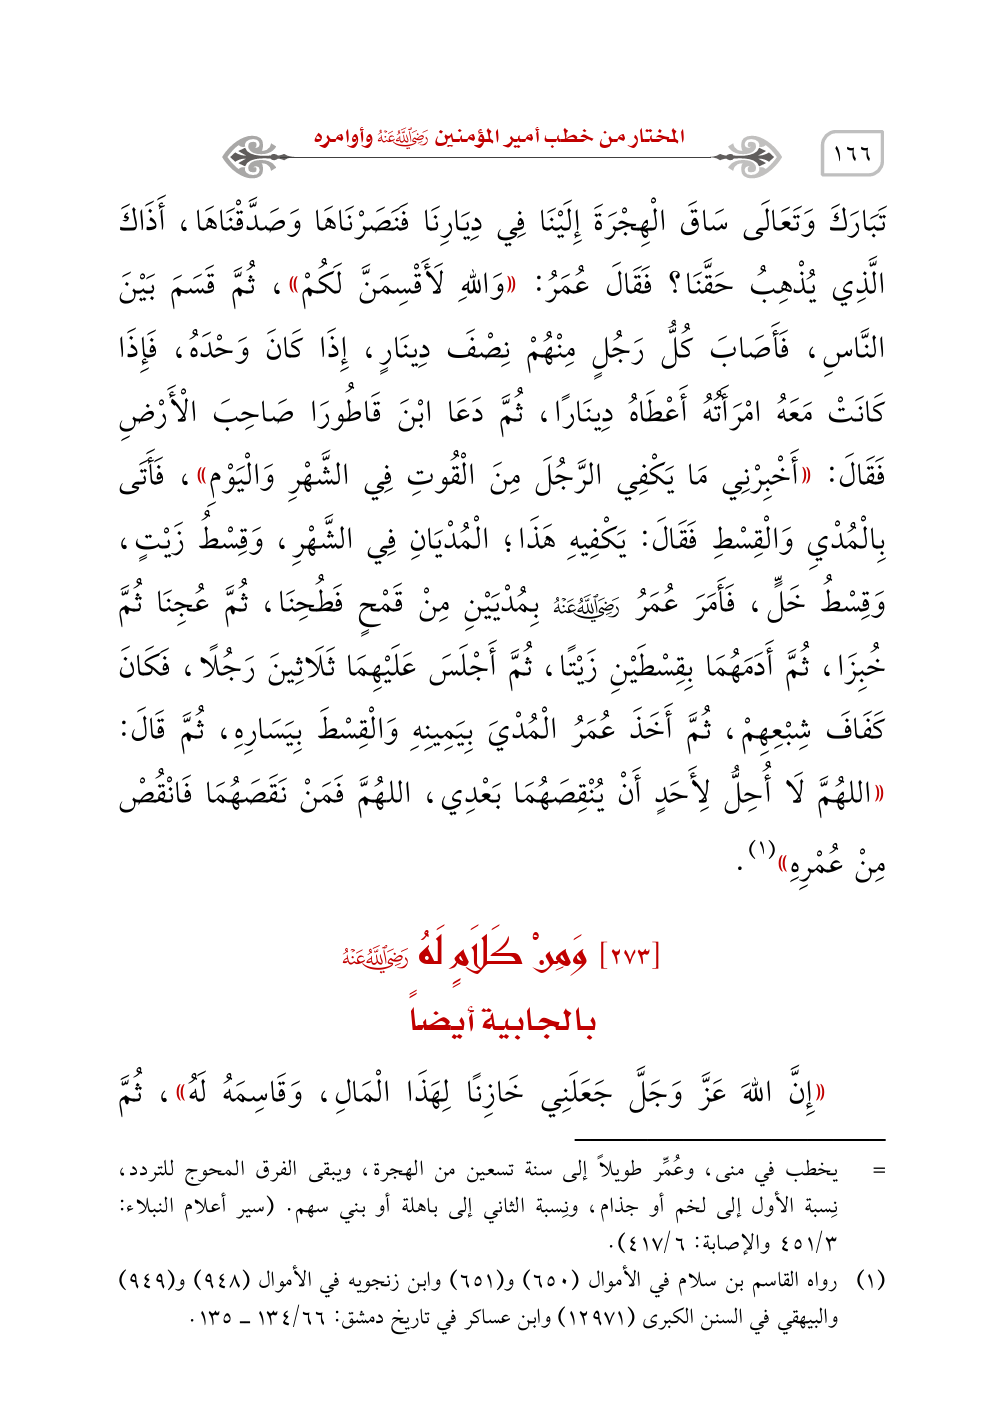 ١٦٦
المختار من خطب أمير المؤمنين رَضِيَاللَّهُعَنْهُ وأوامره
تَبَارَكَ وَتَعَالَى سَاقَ الْهِجْرَةَ إِلَيْنَا فِي دِيَارِنَا فَنَصَرْنَاهَا وَصَدَّقْنَاهَا، أَذَاكَ
الَّذِي يُذْهِبُ حَقَّنَا؟ فَقَالَ عُمَرُ: «وَاللهِ لَأَقْسِمَنَّ لَكُمْ»، ثُمَّ قَسَمَ بَيْنَ
النَّاسِ، فَأَصَابَ كُلُّ رَجُلٍ مِنْهُمْ نِصْفَ دِينَارٍ، إِذَا كَانَ وَحْدَهُ، فَإِذَا
كَانَتْ مَعَهُ امْرَأَتُهُ أَعْطَاهُ دِينَارًا، ثُمَّ دَعَا ابْنَ قَاطُورَا صَاحِبَ الْأَرْضِ
فَقَالَ: «أَخْبِرْنِي مَا يَكْفِي الرَّجُلَ مِنَ الْقُوتِ فِي الشَّهْرِ وَالْيَوْمِ»، فَأَتَى
بِالْمُدْيِ وَالْقِسْطِ فَقَالَ: يَكْفِيهِ هَذَا؛ الْمُدْيَانِ فِي الشَّهْرِ، وَقِسْطُ زَيْتٍ،
وَقِسْطُ خَلٍّ، فَأَمَرَ عُمَرُ رَضِيَاللَّهُعَنْهُ بِمُدْيَيْنِ مِنْ قَمْحٍ فَطُحِنَا، ثُمَّ عُجِنَا ثُمَّ
خُبِزَا، ثُمَّ أَدَمَهُمَا بِقِسْطَيْنِ زَيْتًا، ثُمَّ أَجْلَسَ عَلَيْهِمَا ثَلَاثِينَ رَجُلًا، فَكَانَ
كَفَافَ شِبْعِهِمْ، ثُمَّ أَخَذَ عُمَرُ الْمُدْيَ بِيَمِينِهِ وَالْقِسْطَ بِيَسَارِهِ، ثُمَّ قَالَ:
«اللهُمَّ لَا أُحِلُّ لِأَحَدٍ أَنْ يُنْقِصَهُمَا بَعْدِي، اللهُمَّ فَمَنْ نَقَصَهُمَا فَانْقُصْ
مِنْ عُمْرِهِ»(١).
[٢٧٣] وَمِنْ كَلَامٍ لَهُ رَضِيَاللَّهُعَنْهُ
بالجابية أيضاً
«إِنَّ اللهَ عَزَّ وَجَلَّ جَعَلَنِي خَازِنًا لِهَذَا الْمَالِ، وَقَاسِمَهُ لَهُ»، ثُمَّ
= يخطب في منى، وعُمِّر طويلاً إلى سنة تسعين من الهجرة، ويبقى الفرق المحوج للتردد،
نِسبة الأول إلى لخم أو جذام، ونِسبة الثاني إلى باهلة أو بني سهم. (سير أعلام النبلاء:
٤٥١/٣ والإصابة: ٤١٧/٦).
(١) رواه القاسم بن سلام في الأموال (٦٥٠) و(٦٥١) وابن زنجويه في الأموال (٩٤٨) و(٩٤٩)
والبيهقي في السنن الكبرى (١٢٩٧١) وابن عساكر في تاريخ دمشق: ١٣٤/٦٦ ـ ١٣٥.